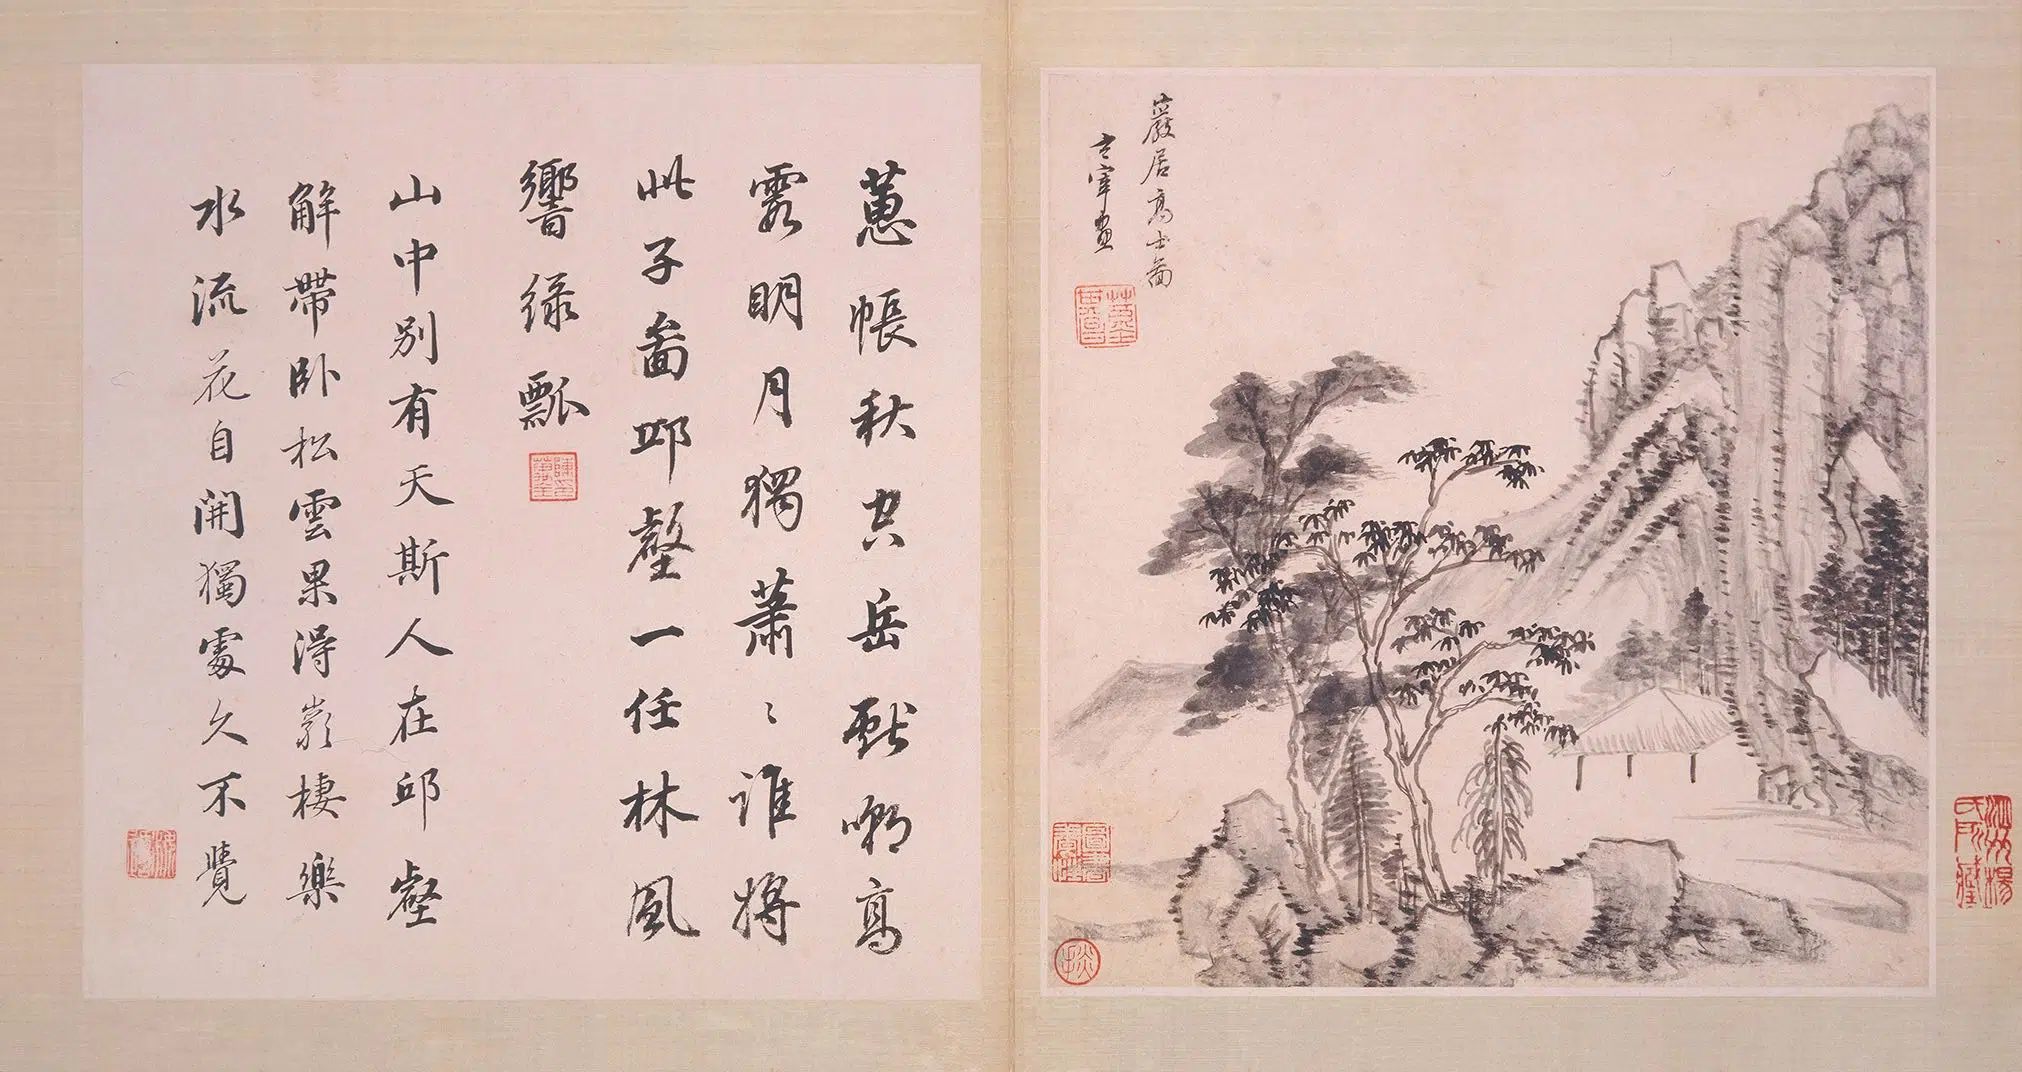 巖居高士圖
玄宰畫
蕙帳秋空岳獻嘲高
霞明月獨蕭々誰將
此子圖邱壑一任林風
響綠瓢
山中別有天斯人在邱壑
解帶臥松雲果得巖棲樂
水流花自開獨處久不覺